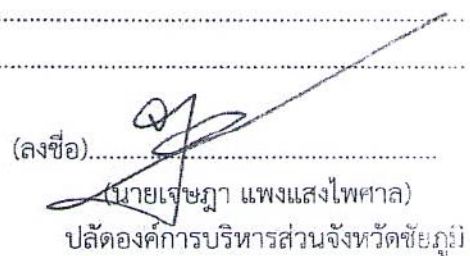 (ลงชื่อ)
(นายเจษฎา แพงแสงไพศาล)
ปลัดองค์การบริหารส่วนจังหวัดชัยภูมิ